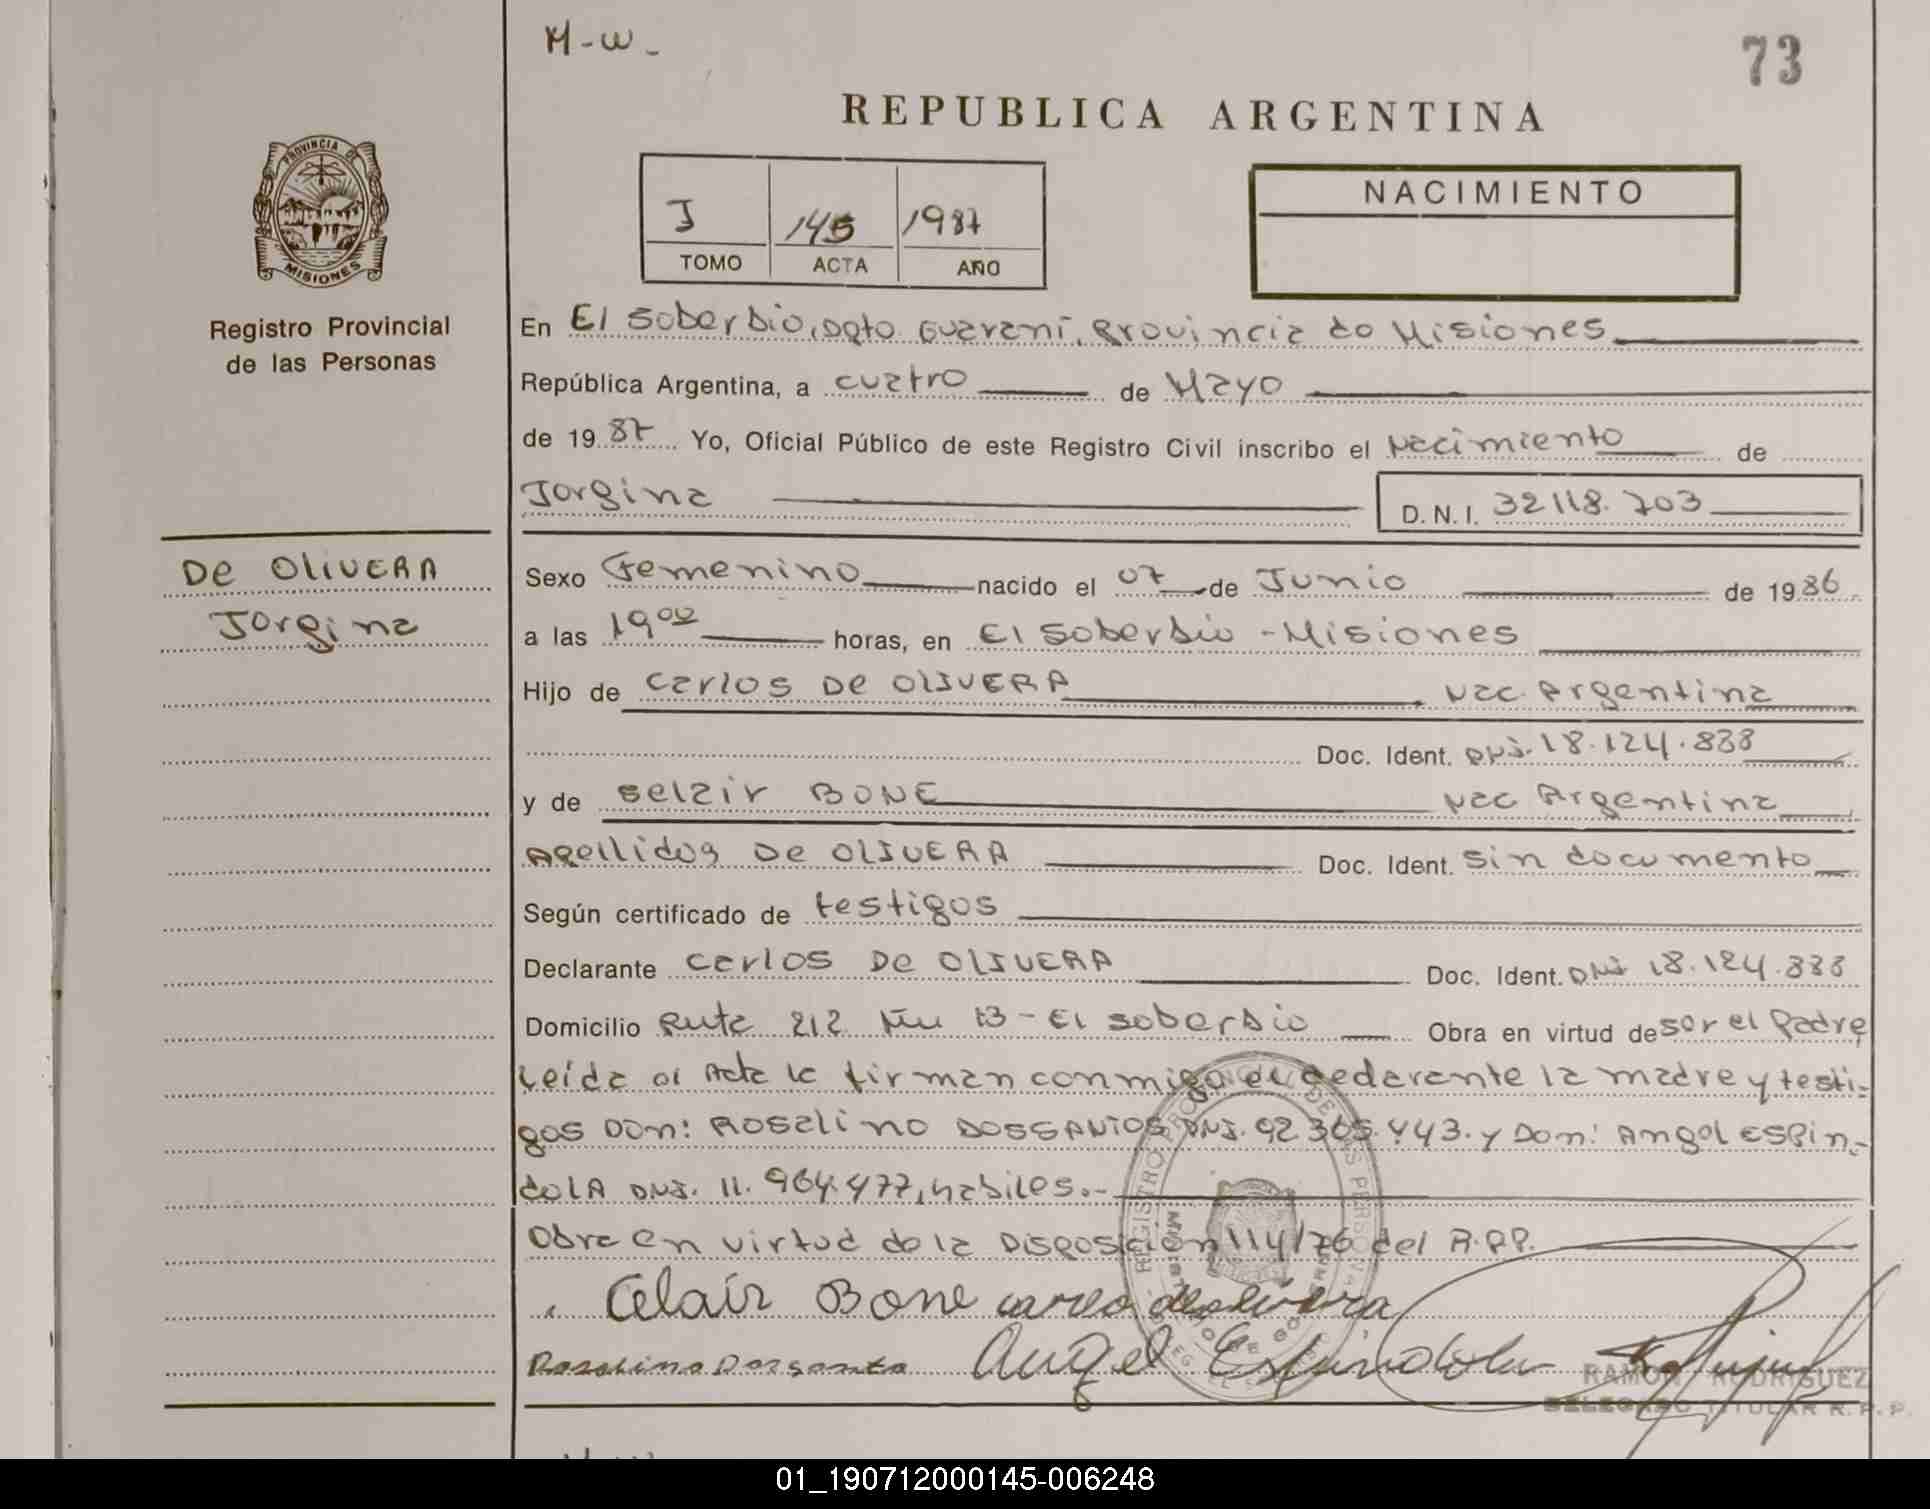 M-W-
73
REPUBLICA ARGENTINA
PROVINCIA DE
MISIONES
Registro Provincial
de las Personas
I 145 1987
TOMO ACTA AÑO
NACIMIENTO
En El Soberbio, Dpto. Guaraní, Provincia de Misiones
República Argentina, a cuatro de Mayo
de 1987 Yo, Oficial Público de este Registro Civil inscribo el Nacimiento de
Jorgina D.N.I. 32118.703
DE OLIVERA
Jorgina
Sexo Femenino nacido el 07 de Junio de 1986
a las 19 00 horas, en El Soberbio - Misiones
Hijo de Carlos DE OLIVERA, Nac. Argentina
Doc. Ident. DNI. 18.124.838
y de Selair BONE Nac Argentina
Apellidos DE OLIVERA Doc. Ident. sin documento
Según certificado de testigos
Declarante Carlos DE OLIVERA Doc. Ident. DNI 18.124.838
Domicilio Ruta 212 13 - El Soberbio Obra en virtud de Ser el Padre,
Leída el Acta la firman conmigo el dedarante la madre y testi-
gos Don: Rosalino DOSSANTOS DNI. 92 365.443. y Don: Angel ESPIN-
dOLA DNI. 11.964.477, habiles.-
Obra en virtud de la Disposición 114/76 del R.P.P.
Celair Bone carlo deolivera
Rosalino Dorsanto Angel Espindola
RAMON RODRIGUEZ
DELEGADO TITULAR R.P.P.
01_190712000145-006248